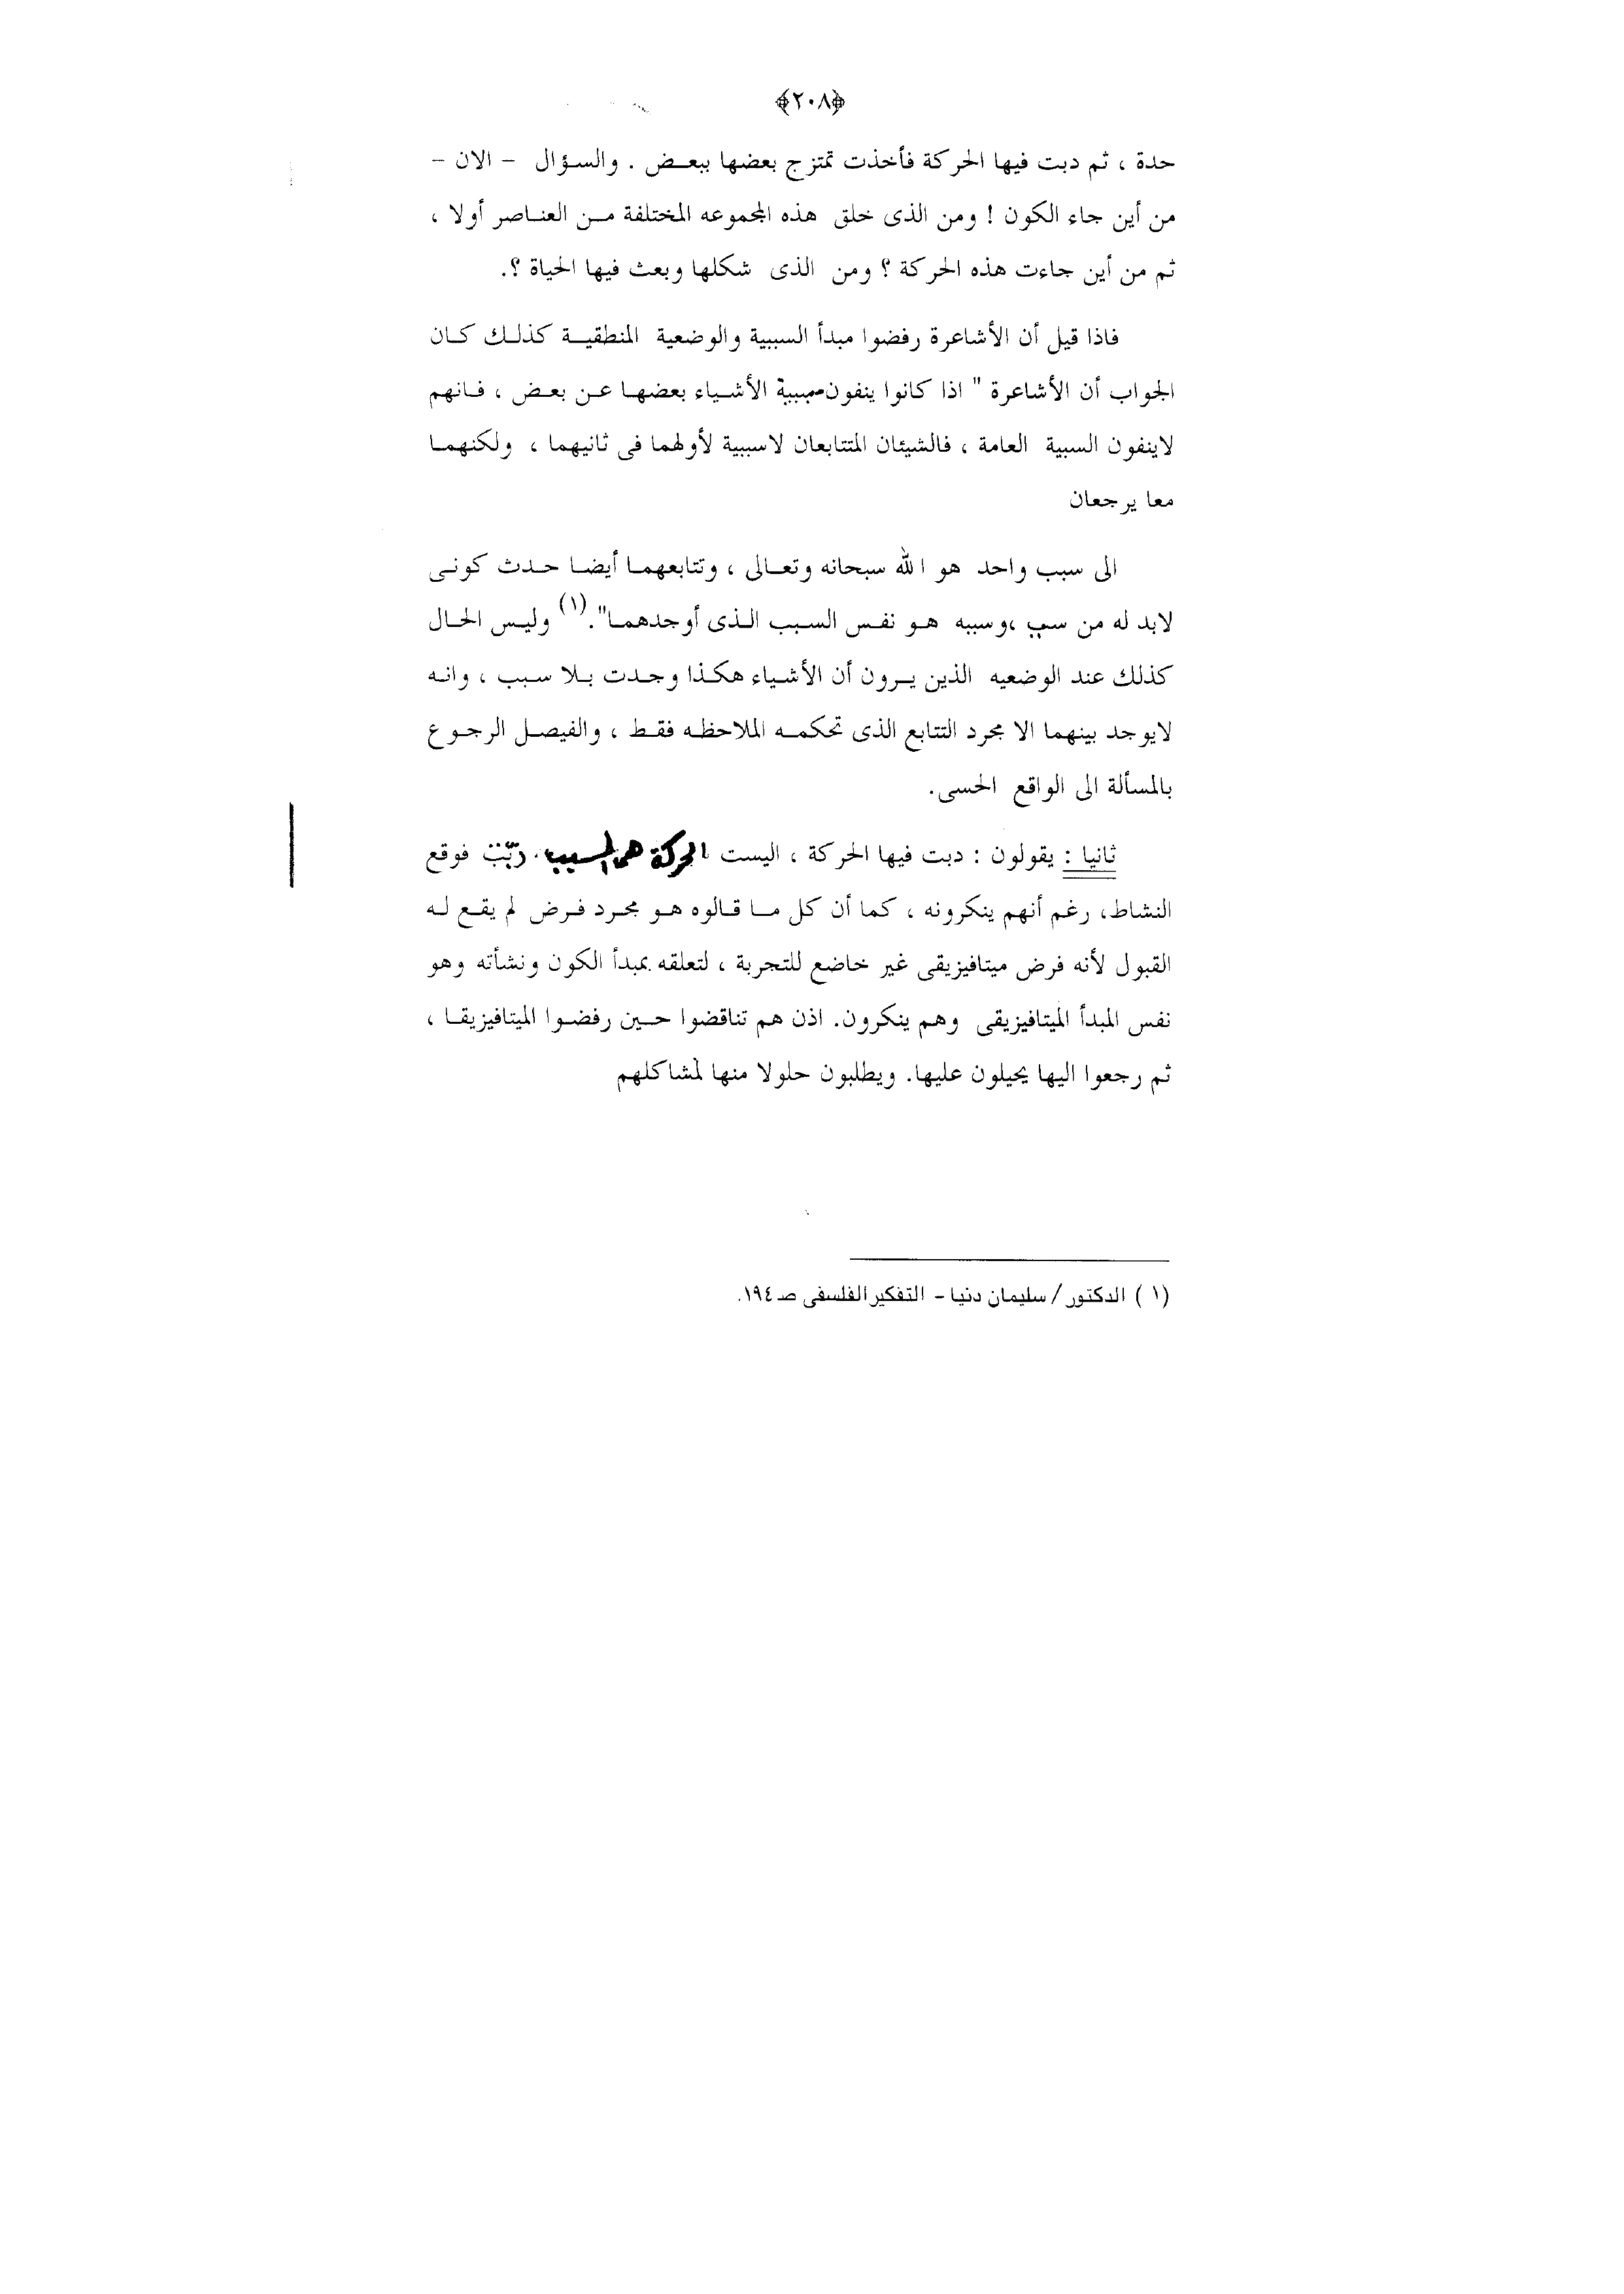 ﴿٢٠٨﴾
حدة ، ثم دبت فيها الحركة فأخذت تمتزج بعضها ببعض . والسؤال - الان -
من أين جاء الكون ! ومن الذى خلق هذه المجموعه المختلفة من العناصر أولا ،
ثم من أين جاءت هذه الحركة ؟ ومن الذى شكلها وبعث فيها الحياة ؟.
فاذا قيل أن الأشاعرة رفضوا مبدأ السببية والوضعية المنطقية كذلك كان
الجواب أن الأشاعرة " اذا كانوا ينفون سببية الأشياء بعضها عن بعض ، فانهم
لاينفون السبية العامة ، فالشيئان المتتابعان لاسببية لأولهما فى ثانيهما ، ولكنهما
معا يرجعان
الى سبب واحد هو الله سبحانه وتعالى ، وتتابعهما أيضا حدث كونى
لابد له من سبب ،وسببه هو نفس السبب الذى أوجدهما".(١) وليس الحال
كذلك عند الوضعيه الذين يرون أن الأشياء هكذا وجدت بلا سبب ، وانه
لايوجد بينهما الا مجرد التتابع الذى تحكمه الملاحظه فقط ، والفيصل الرجوع
بالمسألة الى الواقع الحسى.
ثانيا : يقولون : دبت فيها الحركة ، اليست الحركة هى السبب دبت فوقع
النشاط، رغم أنهم ينكرونه ، كما أن كل ما قالوه هو مجرد فرض لم يقع له
القبول لأنه فرض ميتافيزيقى غير خاضع للتجربة ، لتعلقه بمبدأ الكون ونشأته وهو
نفس المبدأ الميتافيزيقى وهم ينكرون. اذن هم تناقضوا حين رفضوا الميتافيزيقا ،
ثم رجعوا اليها يحيلون عليها. ويطلبون حلولا منها لمشاكلهم
(١ ) الدكتور/ سليمان دنيا - التفكير الفلسفى صـ١٩٤.